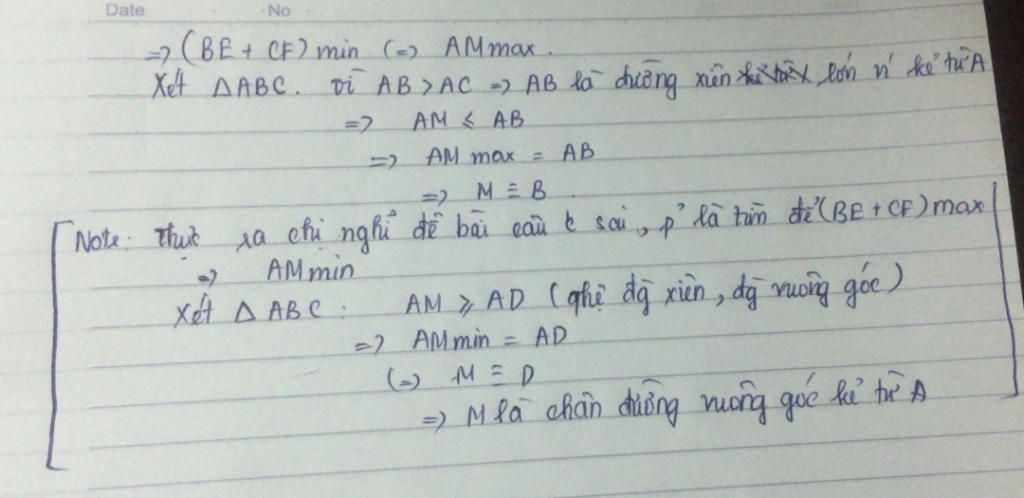 Date No
=> (BE + CF) min <=> AM max.
Xét ΔABC. Vì AB > AC => AB là đường xiên lớn n' kẻ từ A
=> AM ≤ AB
=> AM max = AB
=> M ≡ B.
Note: thực ra chị nghĩ đề bài câu c sai, p' là tìm để (BE + CF) max
=> AM min
Xét Δ ABC: AM ≥ AD (qhệ đg xiên, đg vuông góc)
=> AM min = AD
<=> M ≡ D
=> M là chân đường vuông góc kẻ từ A